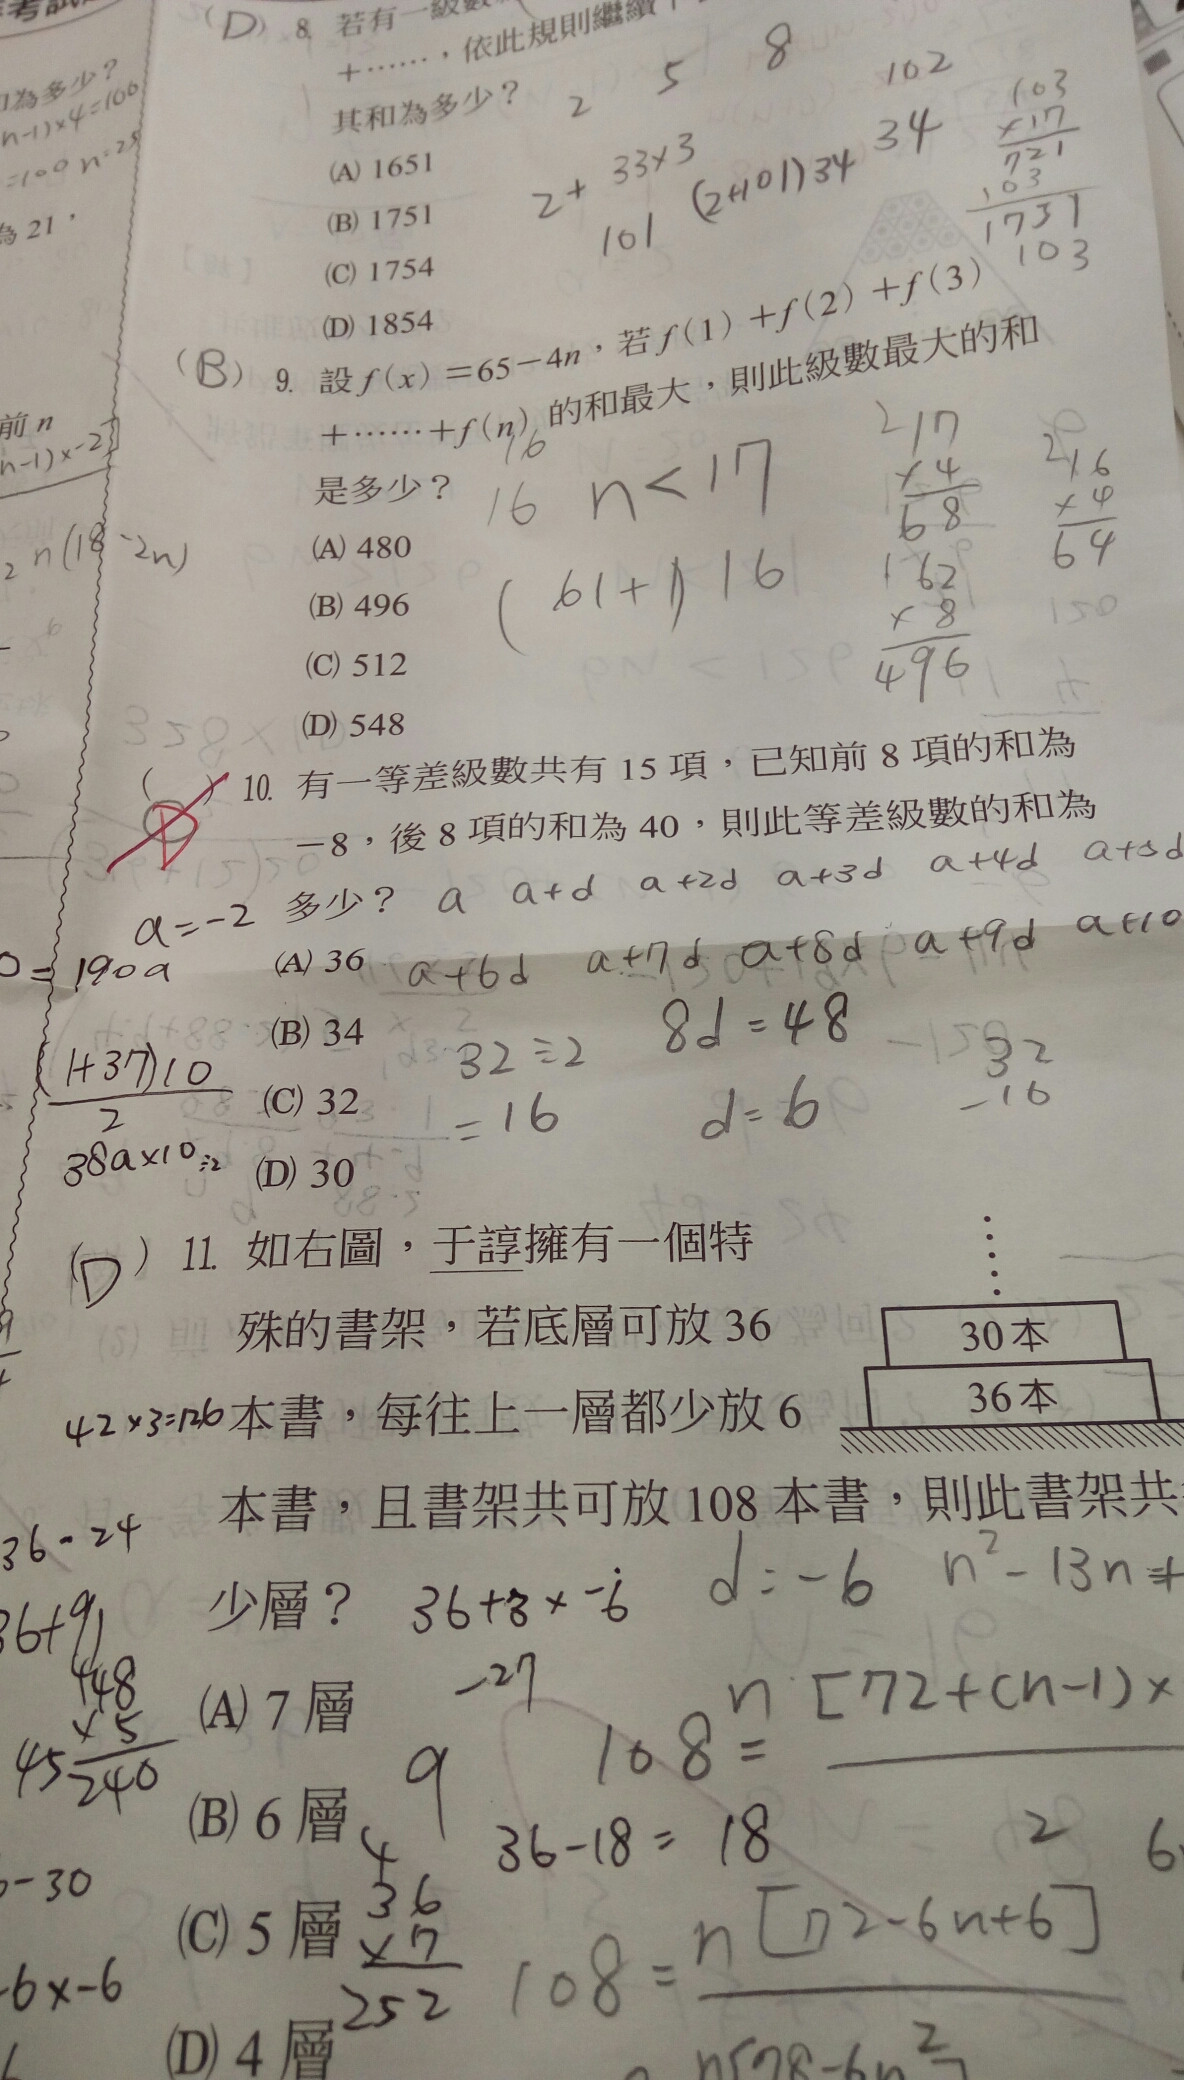 (D) 8. 若有一級數
+……，依此規則繼續
其和為多少？
2 5 8 102
(A) 1651
(B) 1751
(C) 1754
(D) 1854
2+ 33×3
101
(2+101)34
34
103
×17
721
103
1751
103
(B) 9. 設 f(x)=65-4n，若 f(1)+f(2)+f(3)
+……+f(n) 的和最大，則此級數最大的和
是多少？
16
16 n<17
(A) 480
(B) 496
(C) 512
(D) 548
(61+1)16
217
×4
68
162
×8
496
216
×4
64
( ) 10. 有一等差級數共有 15 項，已知前 8 項的和為
D
-8，後 8 項的和為 40，則此等差級數的和為
多少？
a a+d a+2d a+3d a+4d a+5d
a+6d a+7d a+8d a+9d a+10
a=-2
(A) 36
(B) 34
(C) 32
(D) 30
32÷2
=16
8d=48
d=6
32
-16
0=190a
(1+37)10
2
38a×10÷2
(D) 11. 如右圖，于諄擁有一個特
殊的書架，若底層可放 36
本書，每往上一層都少放 6
本書，且書架共可放 108 本書，則此書架共
少層？
30本
36本
(A) 7 層
(B) 6 層
(C) 5 層
(D) 4 層
42×3=126
36+3×-6
d=-6
n²-13n+
-27
9
108=
n[72+(n-1)×
2
36-18=18
4
36
×7
252
108=
n[72-6n+6]
36-24
36+9
48
×5
240
45
-30
-6×-6
為多少？
n-1)×4=100
=100 n=25
為 21，
前 n
n-1)×-2
n(18-2n)